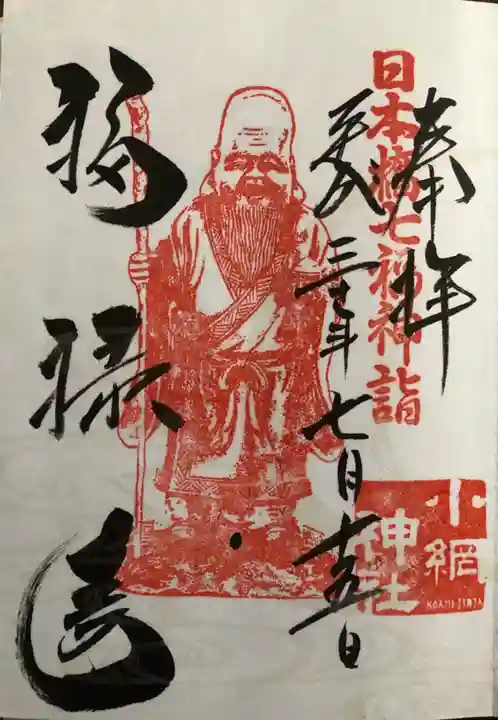 奉拝
日本橋七福神詣
平成三十年七月十五日
福禄寿
小網
神社
KOAMI JINJA